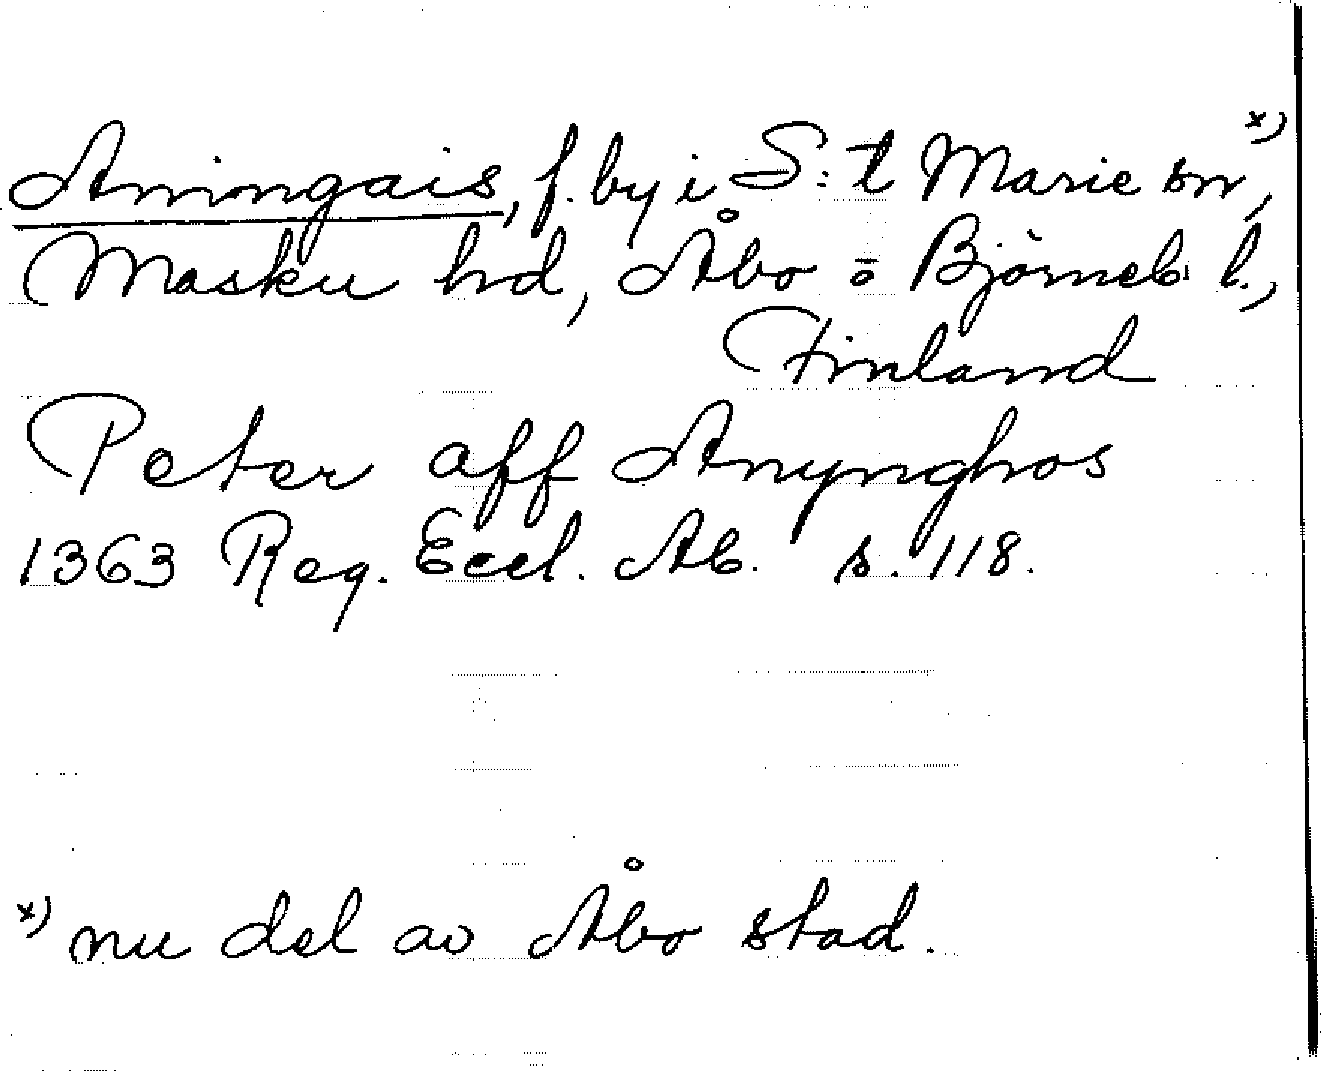 Aningais, f. by i S:t Marie sn, x)
Masku hd, Åbo o Björneb l.,
Finland
Peter aff Anynghos
1363 Reg. Eccl. Ab. s. 118.
x) nu del av Åbo stad.